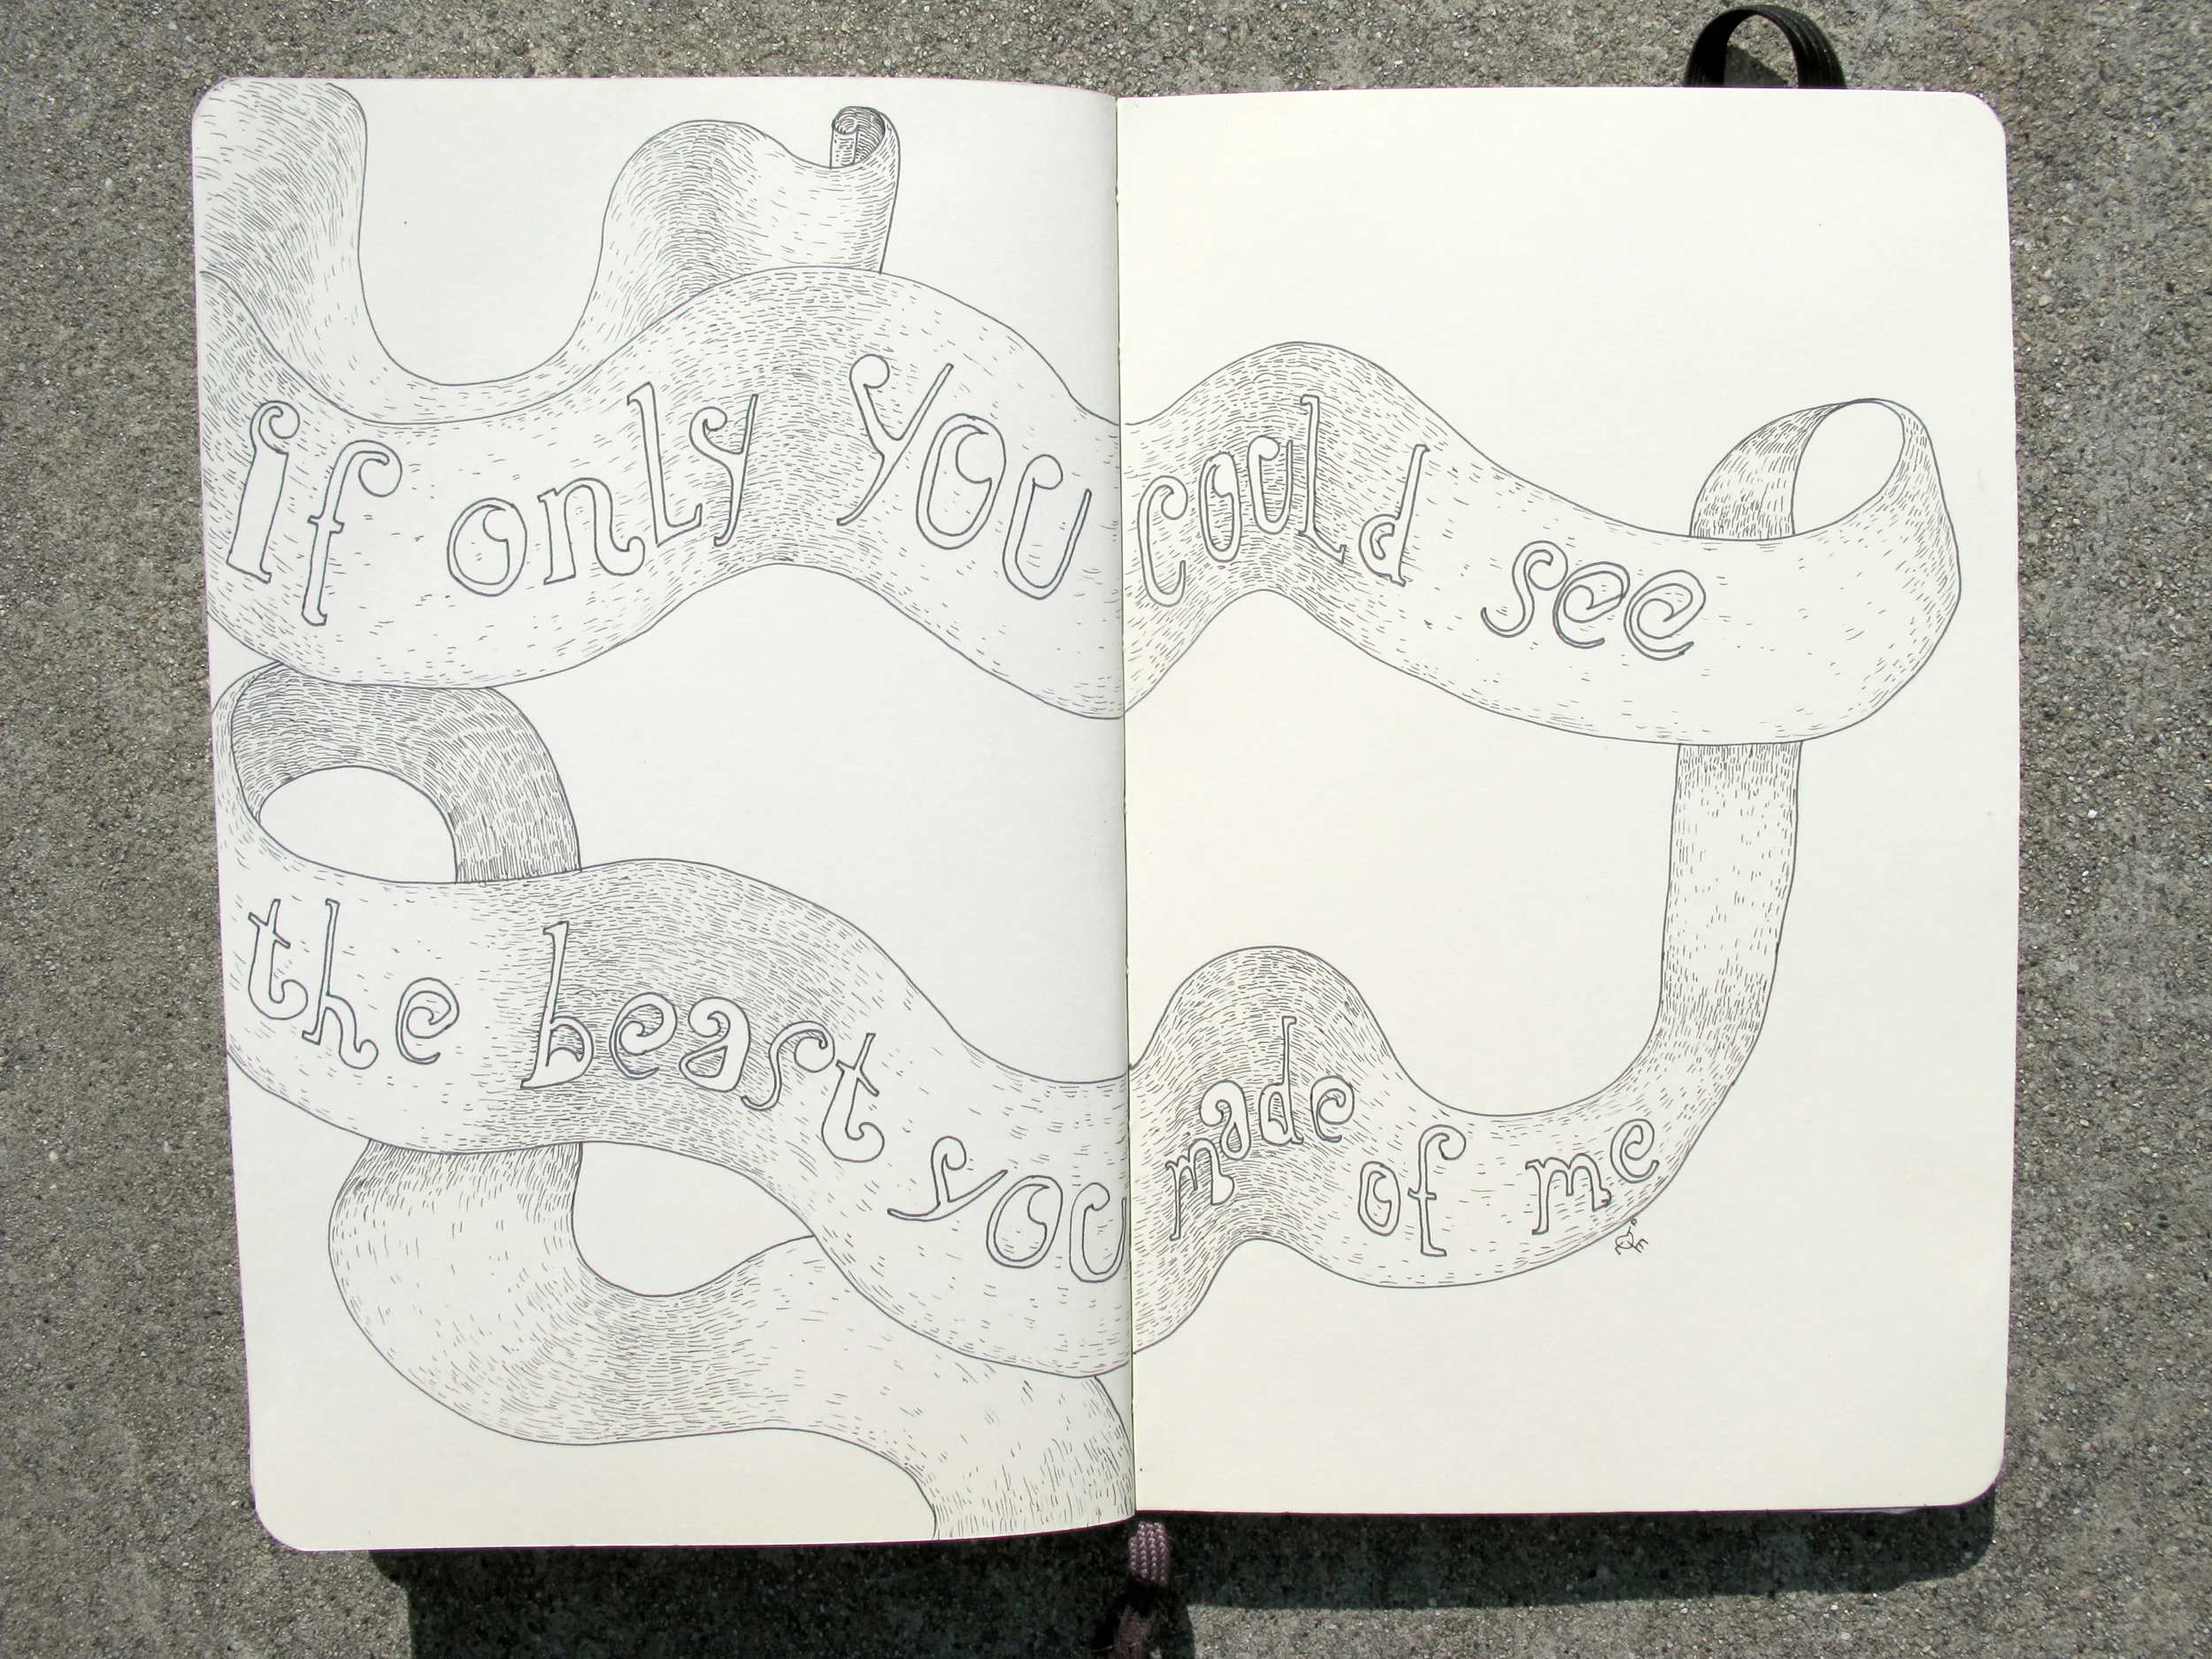 if only you could see
the beast you made of me